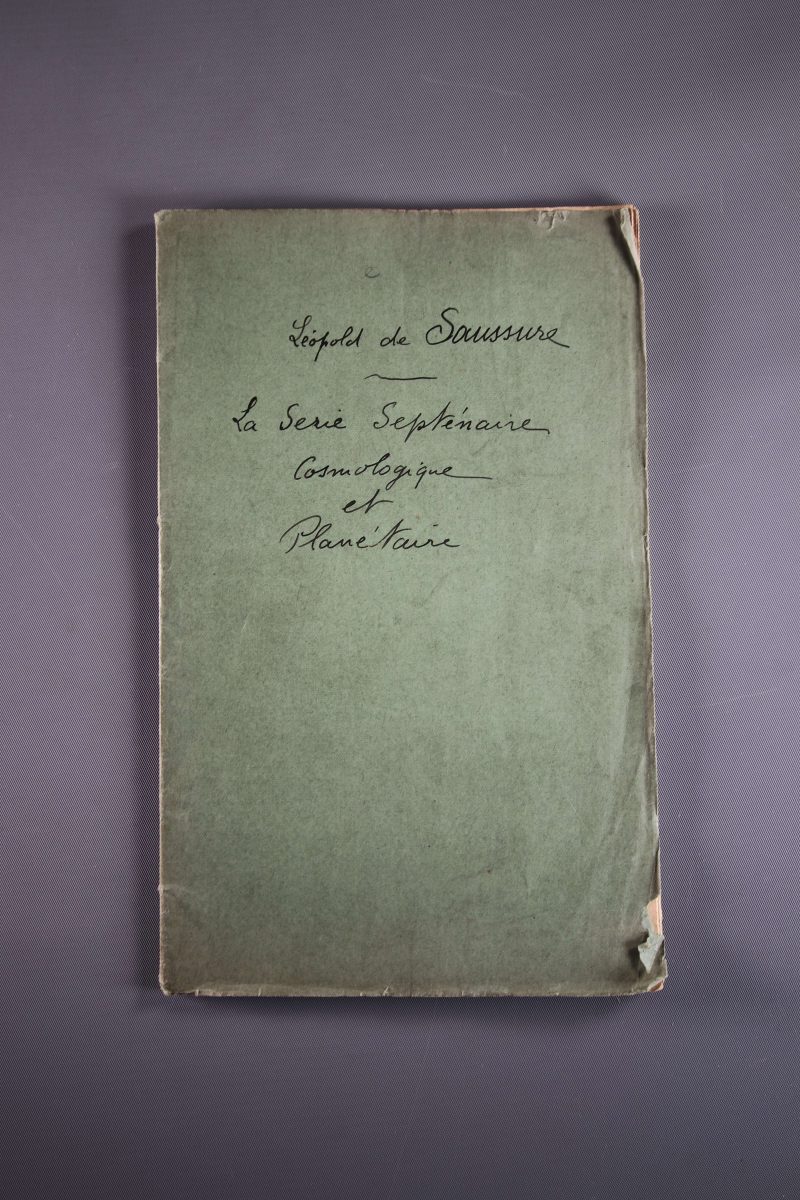 Léopold de Saussure
La Serie Septénaire
Cosmologique
et
Planétaire